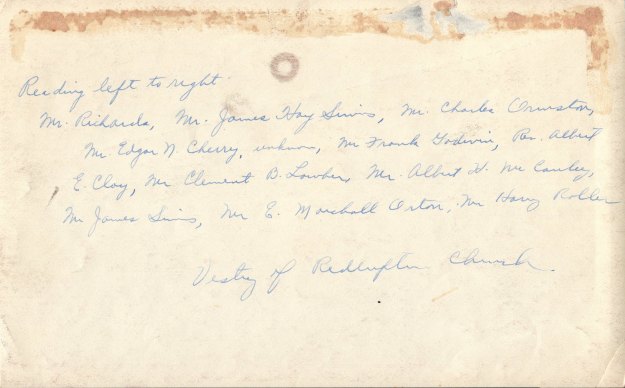 Reading left to right.
Mr. Richards, Mr. James Hay Sims, Mr. Charles Ormston,
Mr Edgar N. Cherry, unknown, Mr Frank Godwin, Rev. Albert
E. Clay, Mr Clement B. Lowber, Mr. Albert H. Mc Cauley,
Mr James Sims, Mr E. Marshall Orton, Mr Harry Roller
Vestry of Church.